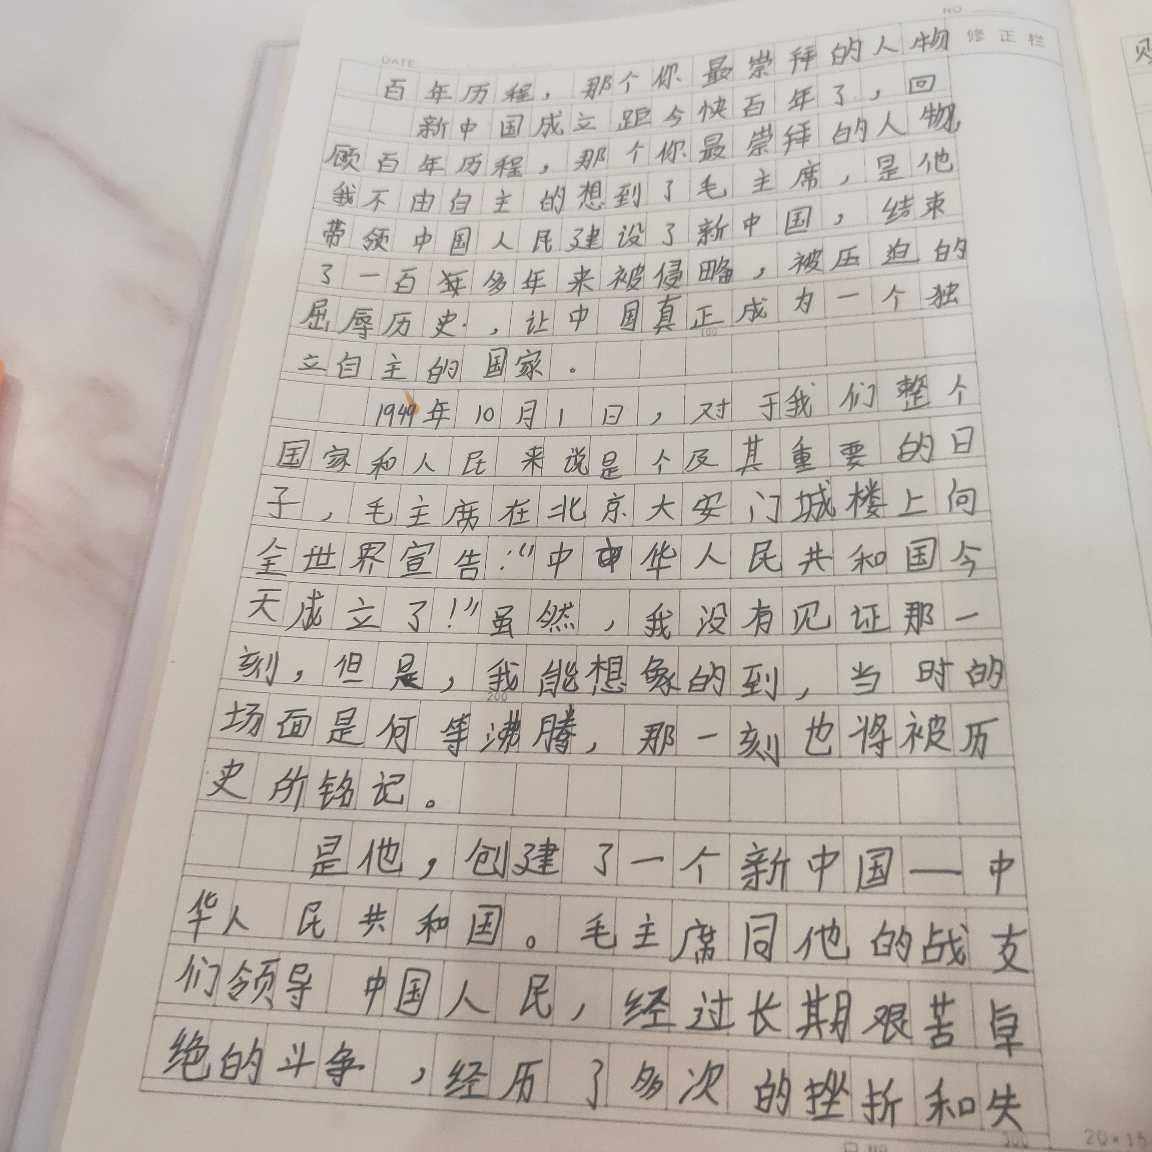 NO
DATE
修正栏
百年历程，那个你最崇拜的人物
新中国成立距今快百年了，回
顾百年历程，那个你最崇拜的人物，
我不由自主的想到了毛主席，是他
带领中国人民建设了新中国，结束
了一百多年来被侵略，被压迫的
屈辱历史，让中国真正成为一个独
100
立自主的国家。
1949年10月1日，对于我们整个
国家和人民来说是个及其重要的日
子，毛主席在北京大安门城楼上向
全世界宣告：“中华人民共和国今
天成立了！”虽然，我没有见证那一
刻，但是，我能想象的到，当时的
200
场面是何等沸腾，那一刻也将被历
史所铭记。
是他，创建了一个新中国—中
华人民共和国。毛主席同他的战友
们领导中国人民，经过长期艰苦卓
绝的斗争，经历了多次的挫折和失
300
20×15